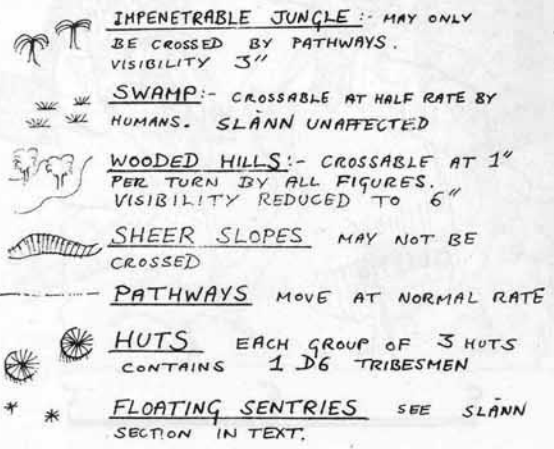 IMPENETRABLE JUNGLE :- MAY ONLY
BE CROSSED BY PATHWAYS.
VISIBILITY 3"
SWAMP:- CROSSABLE AT HALF RATE BY
HUMANS. SLÄNN UNAFFECTED
WOODED HILLS:- CROSSABLE AT 1"
PER TURN BY ALL FIGURES.
VISIBILITY REDUCED TO 6"
SHEER SLOPES MAY NOT BE
CROSSED
PATHWAYS MOVE AT NORMAL RATE
HUTS EACH GROUP OF 3 HUTS
CONTAINS 1 D6 TRIBESMEN
FLOATING SENTRIES SEE SLÄNN
SECTION IN TEXT.